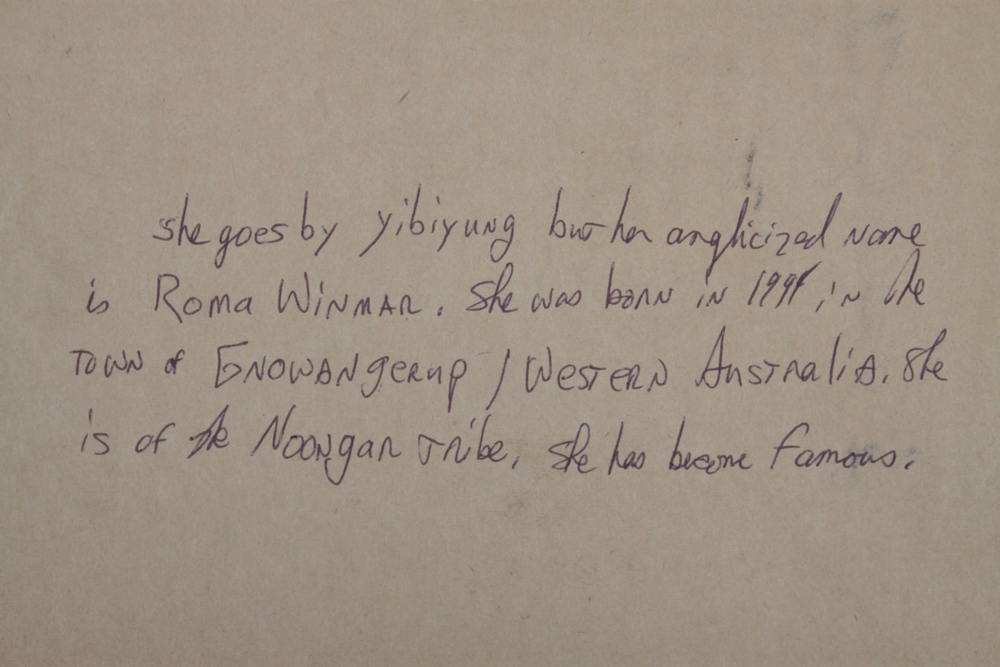 she goes by yibiyung but her anglicized name
is Roma Winmar. She was born in 1944, in the
town of Gnowangerup / Western Australia. She
is of the Noongar tribe. She has become famous.